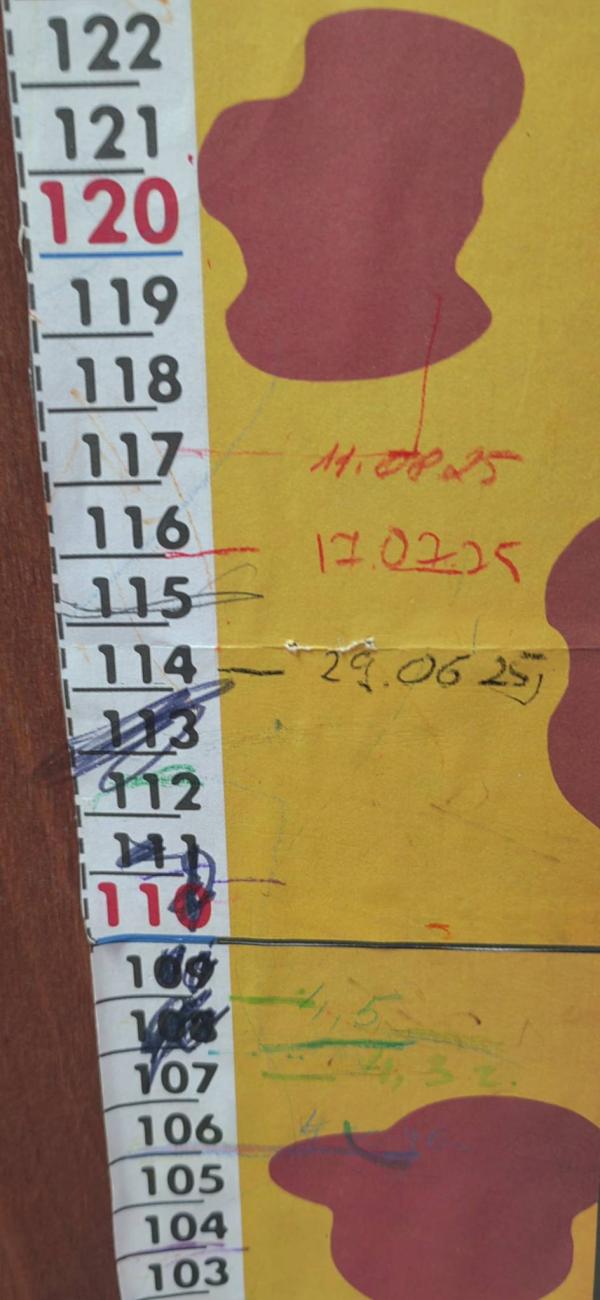 122
121
120
119
118
117 11.08.25
116 17.07.25
115
114 29.06 25
113
112
111
110
109
4,5
108
4,3 г.
107
106
105
104
103